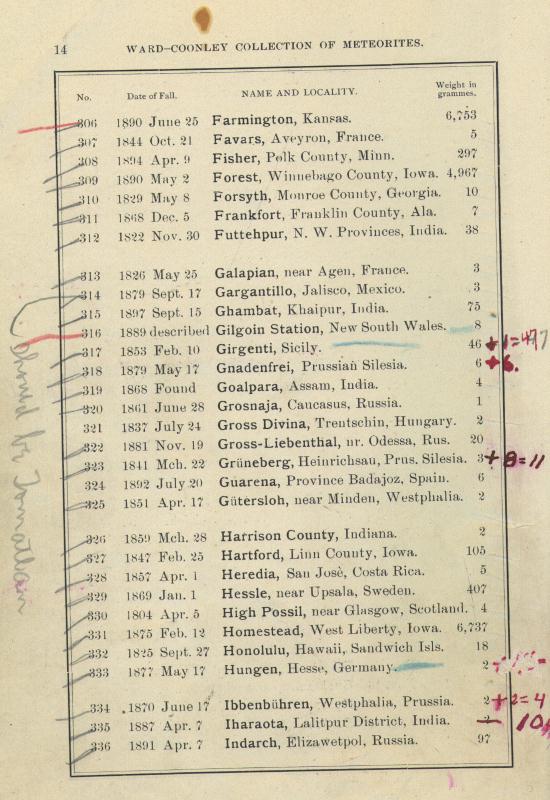 14 WARD–COONLEY COLLECTION OF METEORITES.
No. Date of Fall. NAME AND LOCALITY. Weight in grammes.
306 1890 June 25 Farmington, Kansas. 6,753
307 1844 Oct. 21 Favars, Aveyron, France. 5
308 1894 Apr. 9 Fisher, Polk County, Minn. 297
309 1890 May 2 Forest, Winnebago County, Iowa. 4,967
310 1829 May 8 Forsyth, Monroe County, Georgia. 10
311 1868 Dec. 5 Frankfort, Franklin County, Ala. 7
312 1822 Nov. 30 Futtehpur, N. W. Provinces, India. 38
313 1826 May 25 Galapian, near Agen, France. 3
314 1879 Sept. 17 Gargantillo, Jalisco, Mexico. 3
315 1897 Sept. 15 Ghambat, Khaipur, India. 75
316 1889 described Gilgoin Station, New South Wales. 8
317 1853 Feb. 10 Girgenti, Sicily. 46 +1=47
318 1879 May 17 Gnadenfrei, Prussian Silesia. 6 +6.
319 1868 Found Goalpara, Assam, India. 4
320 1861 June 28 Grosnaja, Caucasus, Russia. 1
321 1837 July 24 Gross Divina, Trentschin, Hungary. 2
322 1881 Nov. 19 Gross-Liebenthal, nr. Odessa, Rus. 20
323 1841 Mch. 22 Grüneberg, Heinrichsau, Prus. Silesia. 3 +8=11
324 1892 July 20 Guarena, Province Badajoz, Spain. 6
325 1851 Apr. 17 Gütersloh, near Minden, Westphalia. 2
326 1859 Mch. 28 Harrison County, Indiana. 2
327 1847 Feb. 25 Hartford, Linn County, Iowa. 105
328 1857 Apr. 1 Heredia, San Josè, Costa Rica. 5
329 1869 Jan. 1 Hessle, near Upsala, Sweden. 407
330 1804 Apr. 5 High Possil, near Glasgow, Scotland. 4
331 1875 Feb. 12 Homestead, West Liberty, Iowa. 6,737
332 1825 Sept. 27 Honolulu, Hawaii, Sandwich Isls. 18
333 1877 May 17 Hungen, Hesse, Germany. 2
334 1870 June 17 Ibbenbühren, Westphalia, Prussia. 2 +2=4
335 1887 Apr. 7 Iharaota, Lalitpur District, India. 2 — 10
336 1891 Apr. 7 Indarch, Elizawetpol, Russia. 97
Should be